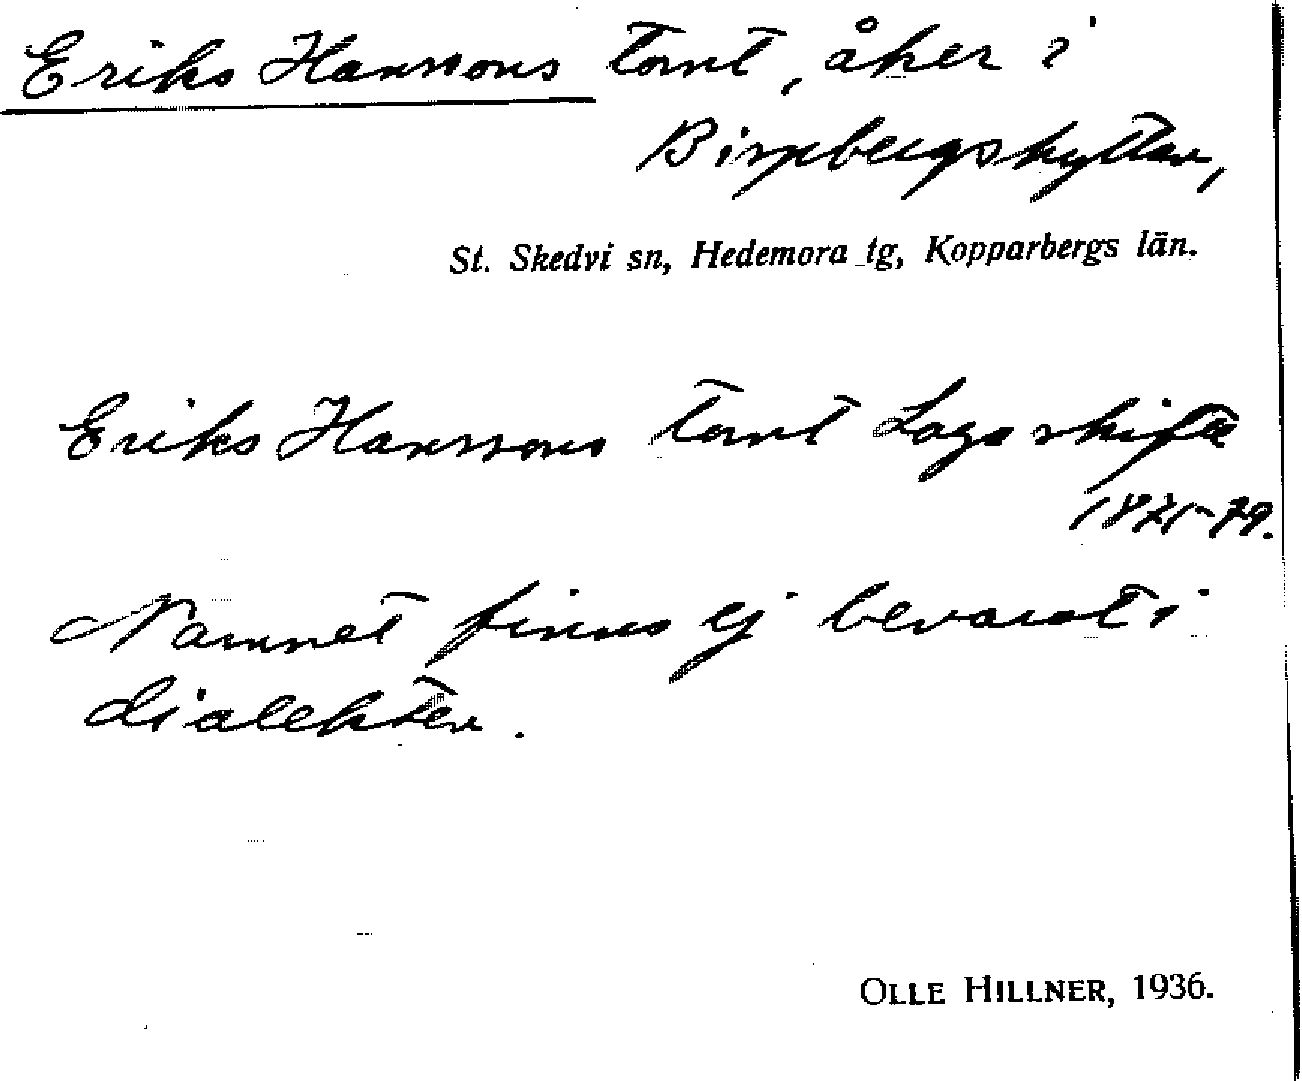 Eriks Hanssons tomt, åker i
Bispbergshyttan,
St. Skedvi sn, Hedemora tg, Kopparbergs län.
Eriks Hanssons tomt Laga skifte
1875-79.
Namnet finns ej bevarat i
dialekten.
OLLE HILLNER, 1936.